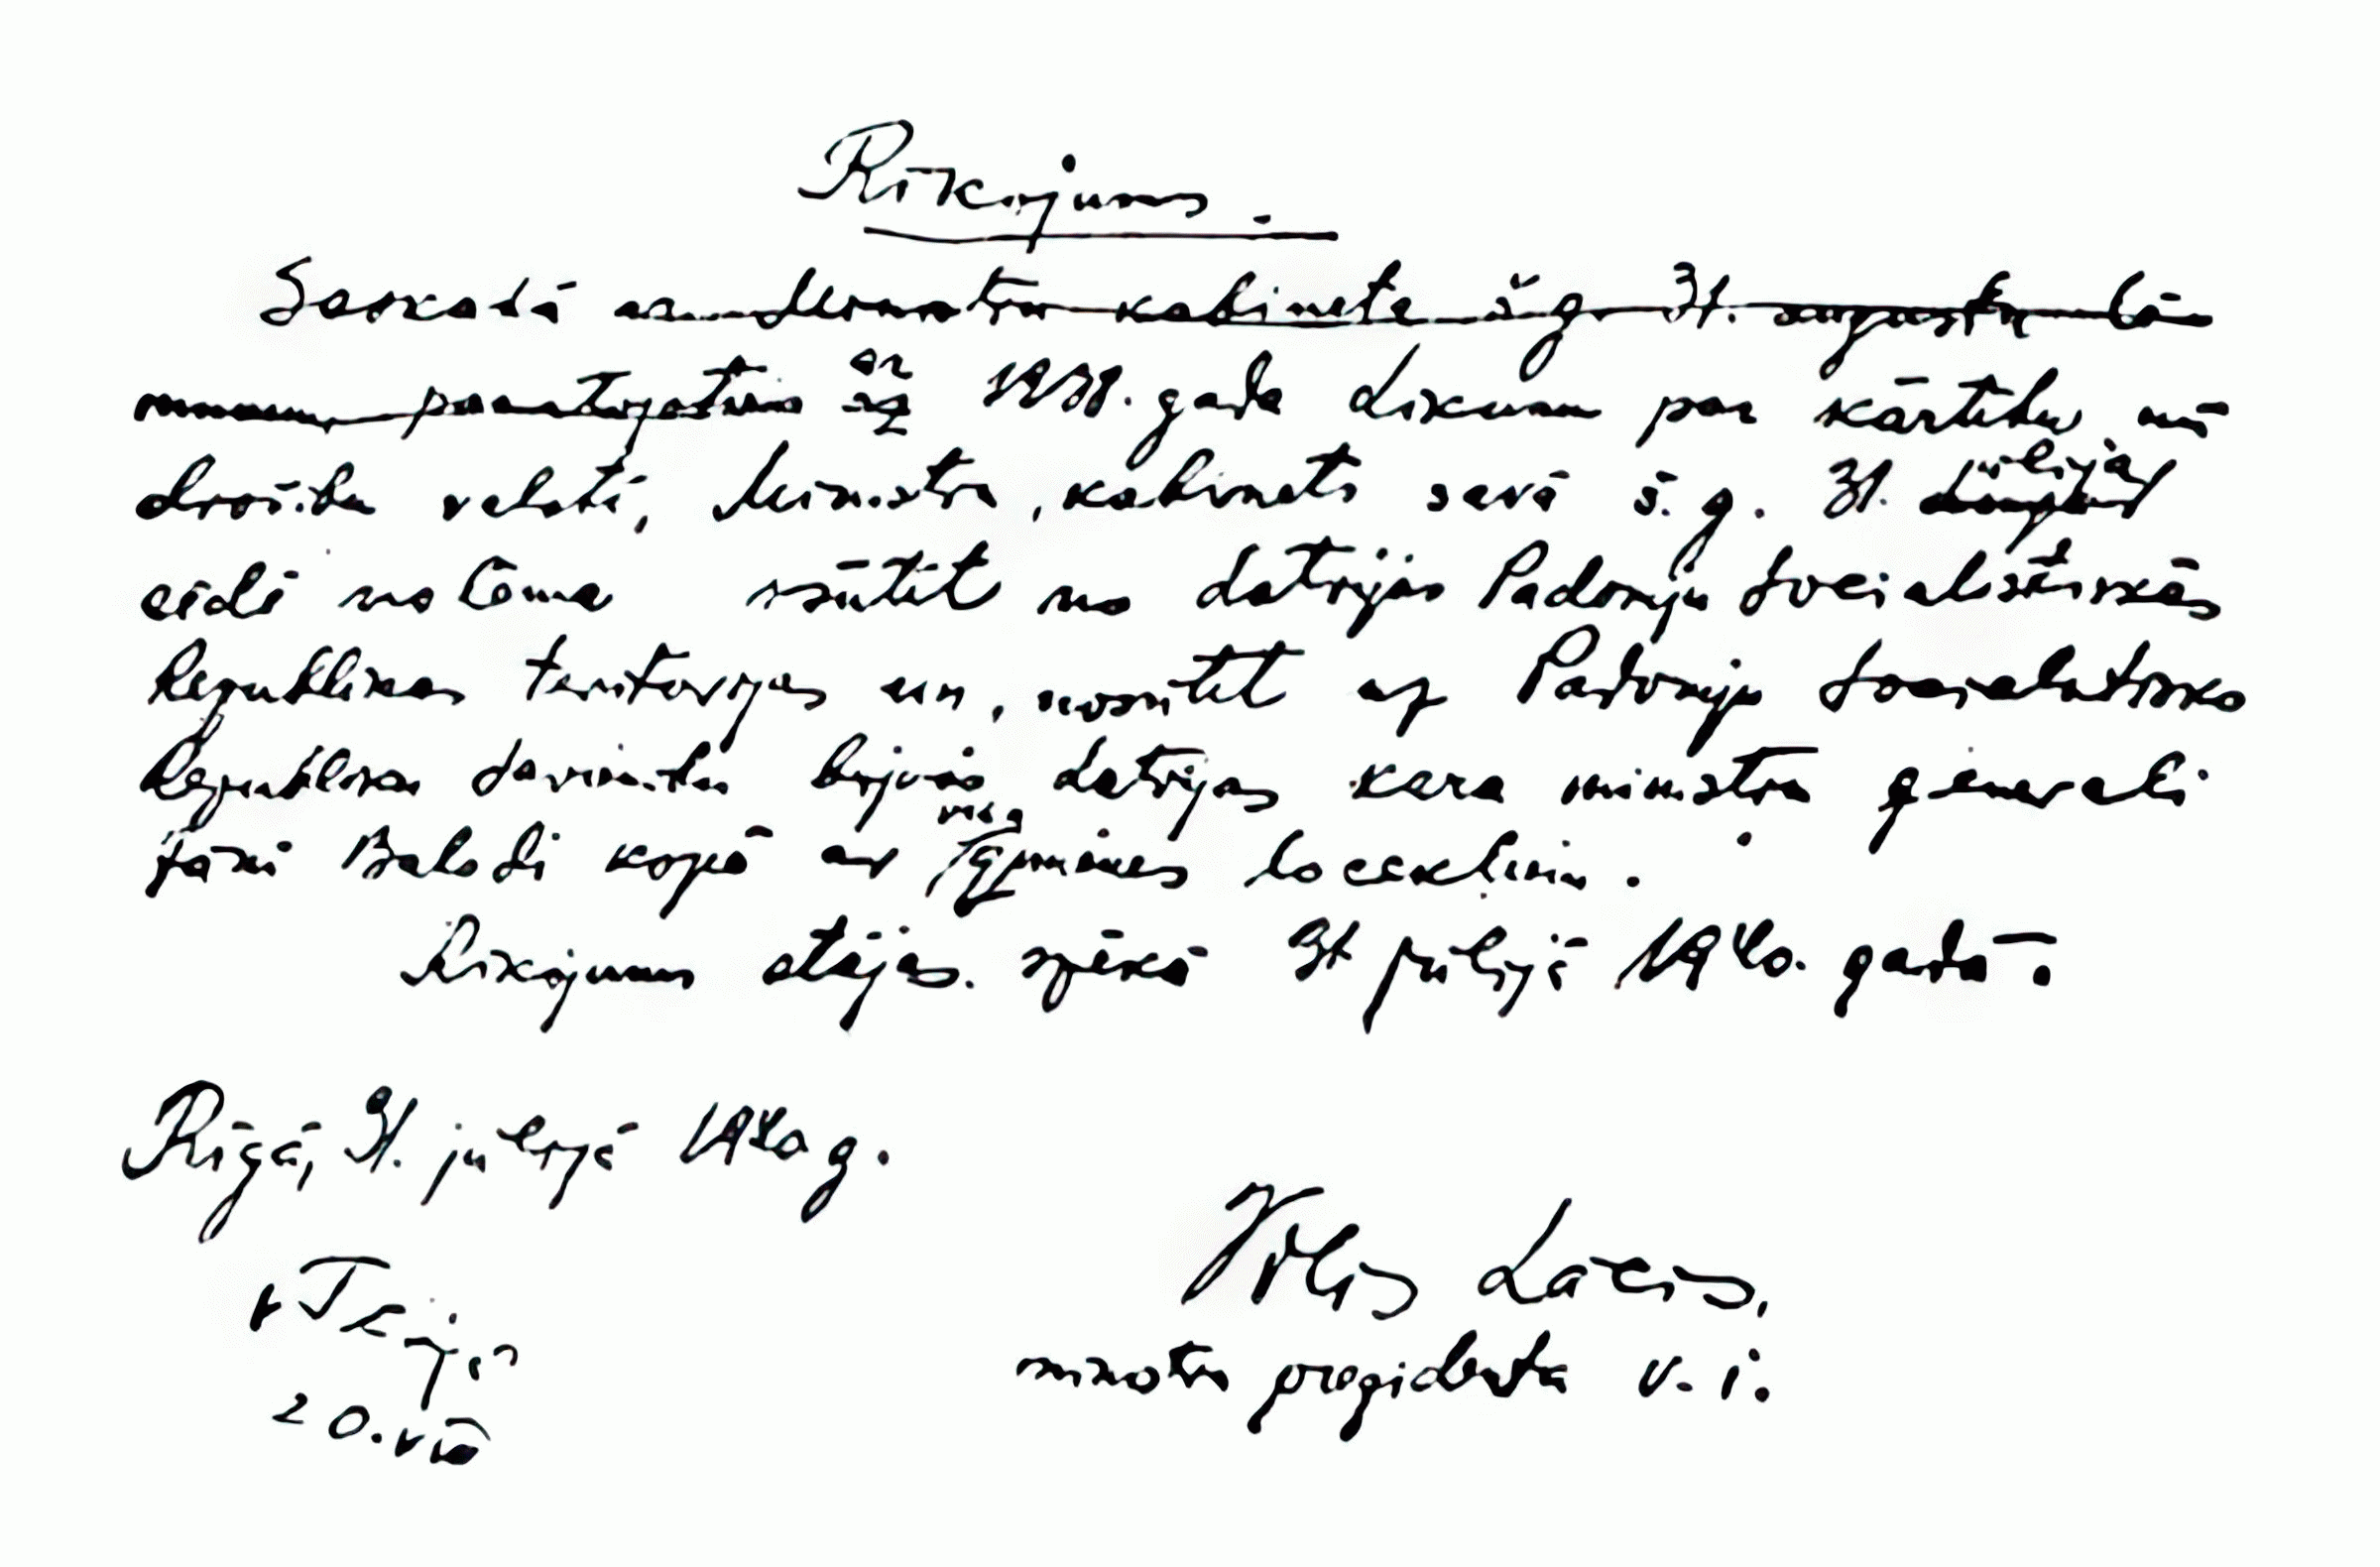 Rīkojums.
Saskaņā ar Ministru kabineta š.g. 31. augusta lē
mumu, pamatojoties uz ar 1938. gada likumu par kārtību un
drošību valstī, Ministru kabinets savā š. g. 31. jūlija
sēdē nolēma izsūtīt no Latvijas Padomju Sociālistiskās
Republikas teritorijas un nosūtīt uz Padomju Sociālistisko
Republiku Savienību bijušo Latvijas kara ministru ģenerāli
Jāni Balodi kopā ar viņa ģimenes locekļiem.
Rīkojums stājas spēkā 31 jūlijā 1940. gadā.
Rīgā, 31. jūlijā 1940 g.
Vilis Lācis,
ministru prezidenta v. i.
20. VIII